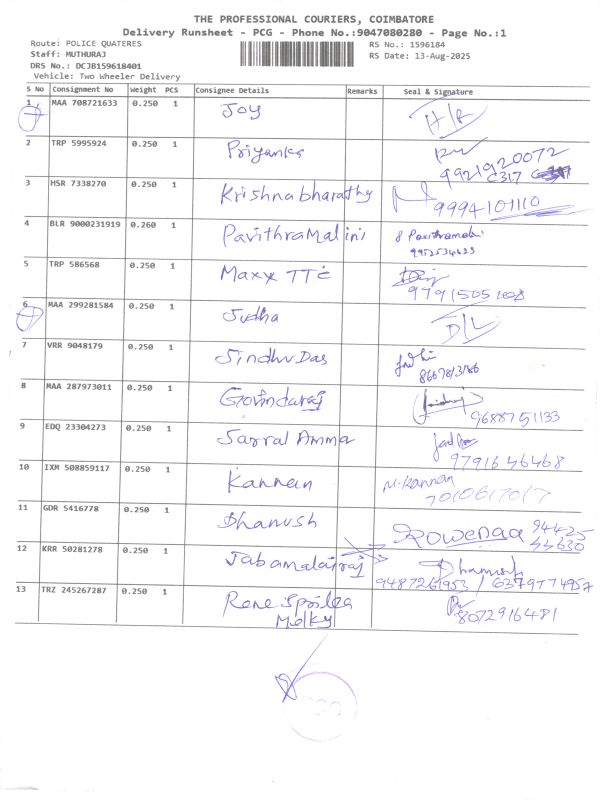 THE PROFESSIONAL COURIERS, COIMBATORE
Delivery Runsheet - PCG - Phone No.:9047080280 - Page No.:1
Route: POLICE QUATERES RS No.: 1596184
Staff: MUTHURAJ RS Date: 13-Aug-2025
DRS No.: DCJB159618401
Vehicle: Two Wheeler Delivery
S No Consignment No Weight PCS Consignee Details Remarks Seal & Signature
1 MAA 708721633 0.250 1 Joy
2 TRP 5995924 0.250 1 Priyanka
9921920072
C317
3 HSR 7338270 0.250 1 Krishnabharathy 9994101110
4 BLR 9000231919 0.260 1 PavithraMalini
5 TRP 586568 0.250 1 Maxx TTC
9791505
6 MAA 299281584 0.250 1 Sudha D/L
7 VRR 9048179 0.250 1 Sindhu Das
8 MAA 287973011 0.250 1 Govindaraj
9688751133
9 EDQ 23304273 0.250 1 Sarral Amma
9791646468
10 IXM 508859117 0.250 1 Kannan M. Kannan
7010617017
11 GDR 5416778 0.250 1 Dhanush Rowenaa 94425
44630
12 KRR 50281278 0.250 1 Jabamalairaj Dhanush
9487261953 / 6379774957
13 TRZ 245267287 0.250 1 Rene
Melky 8072916481